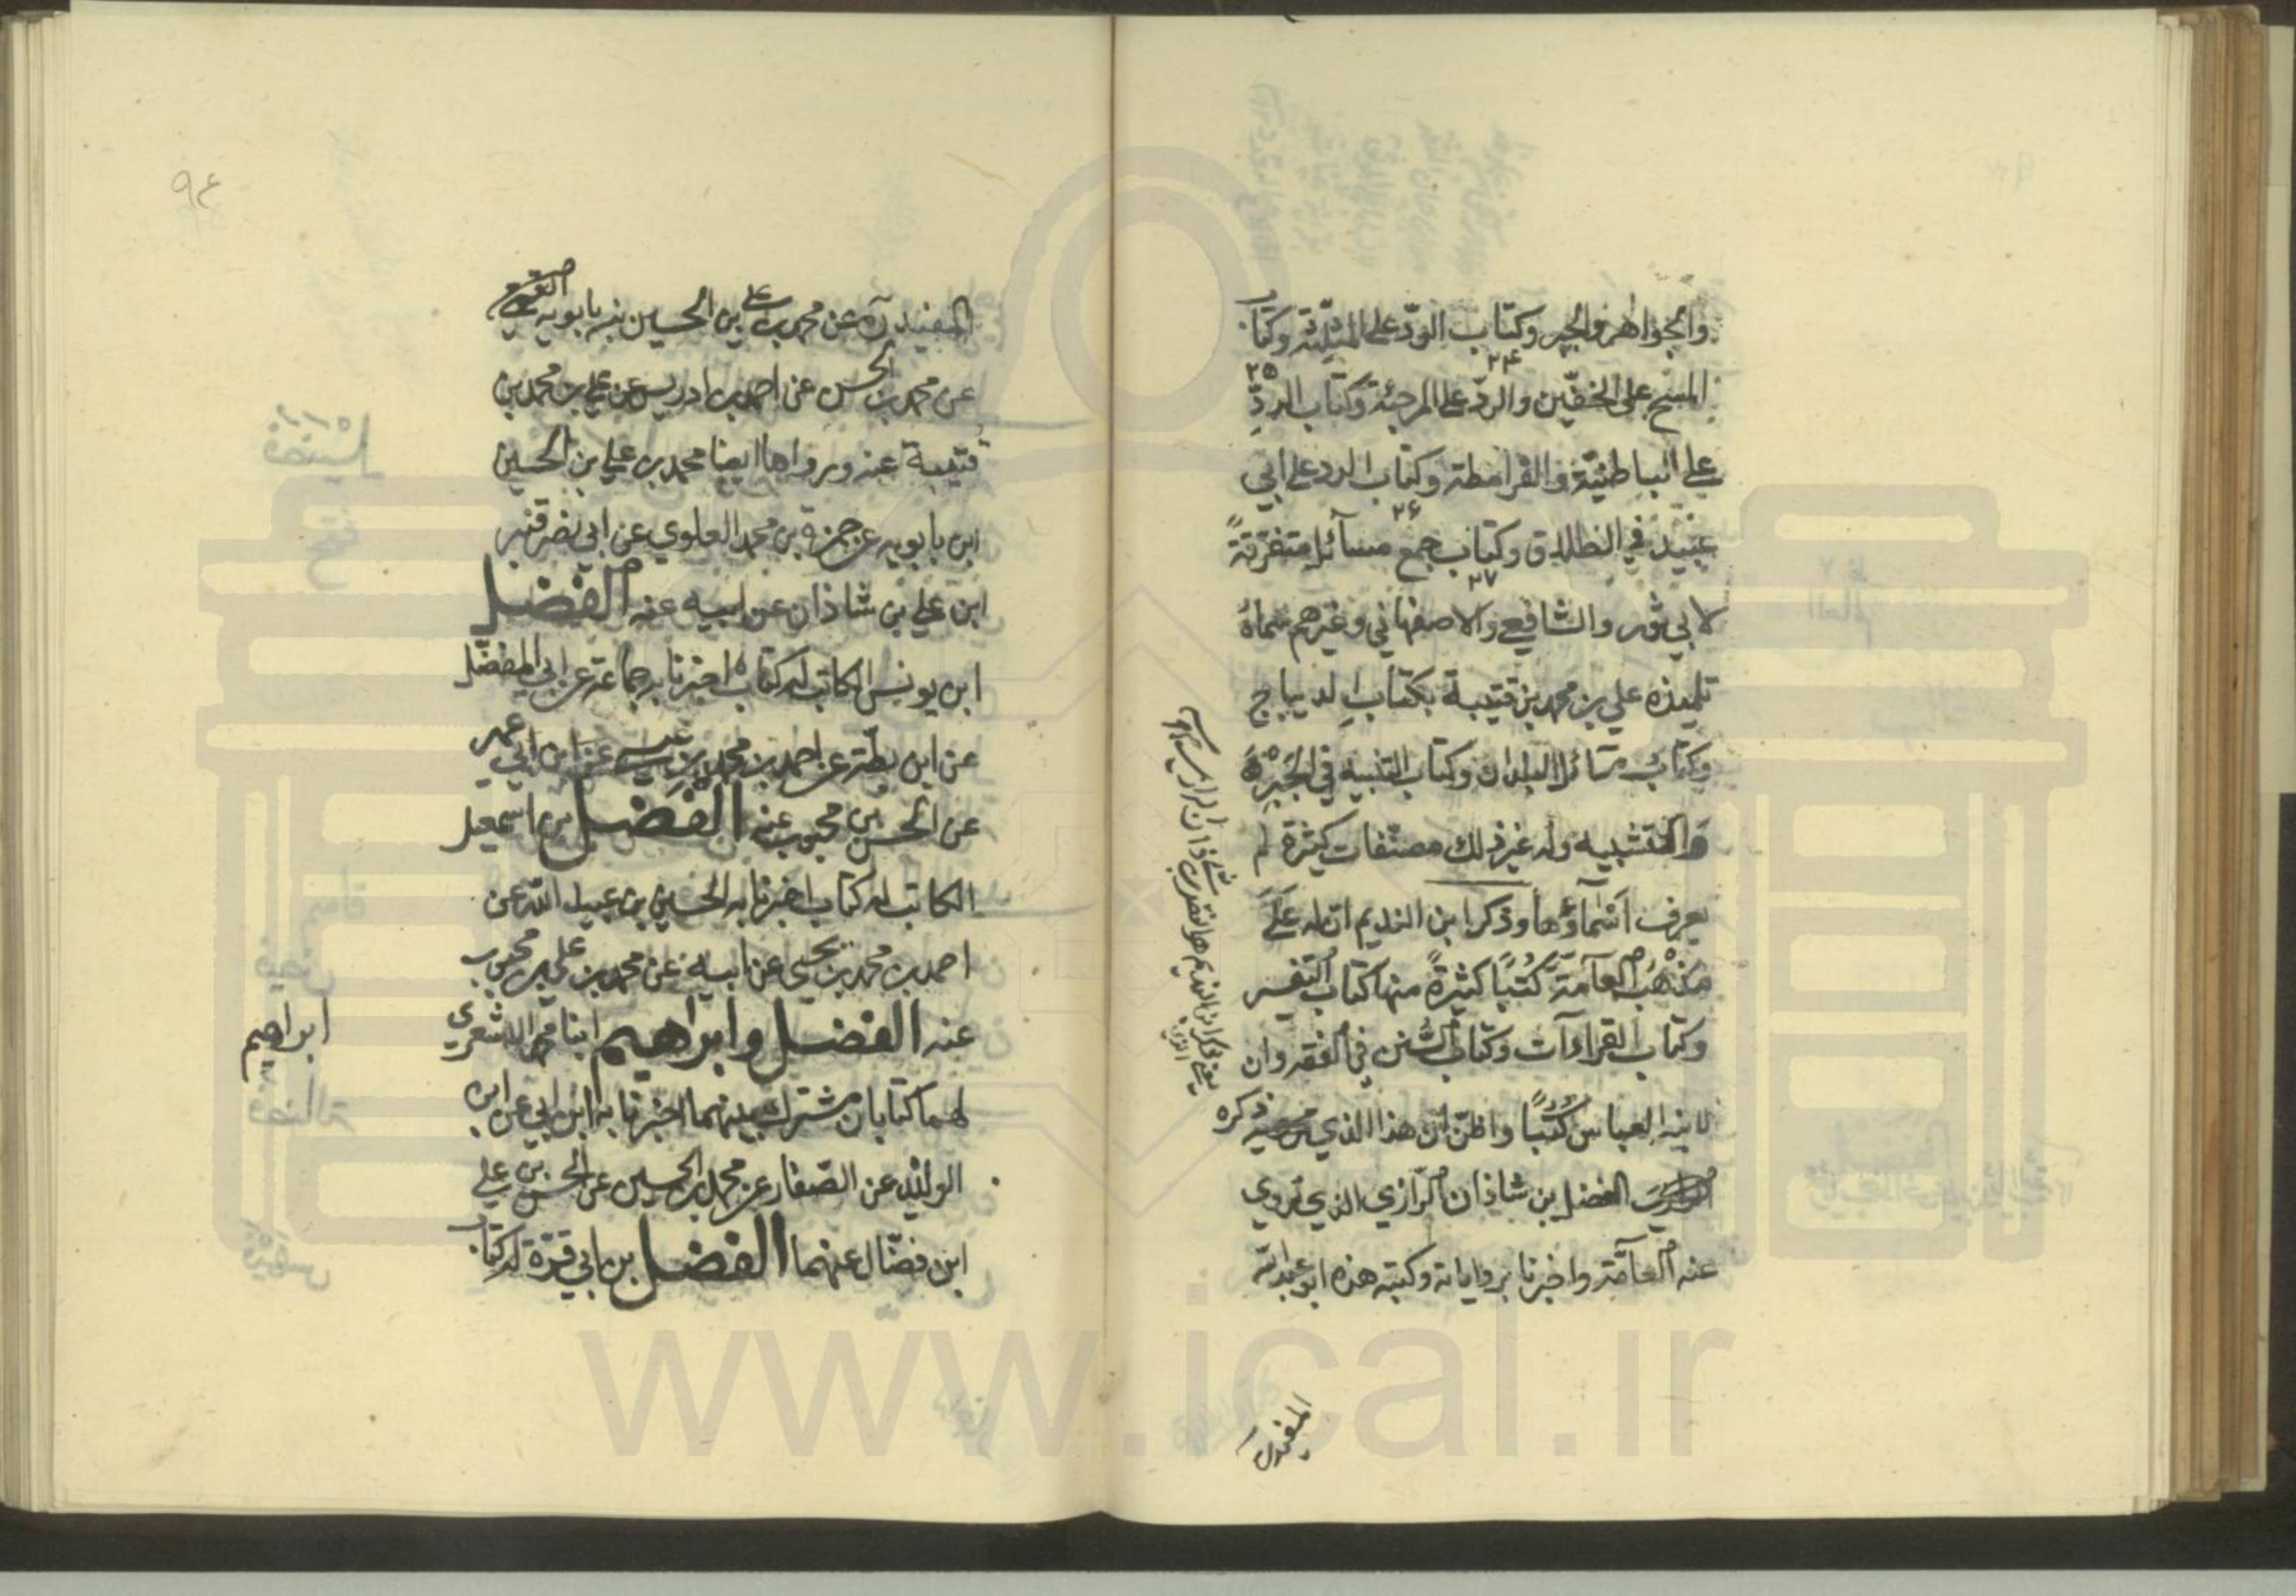 والجواهر والجبر وكتاب الردّ على المثلّثة وكتاب
٢٤
٢٥
المسح على الخفّين والردّ على المرجئة وكتاب الردّ
على الباطنيّة والقرامطة وكتاب الرد على ابي
٢۶
عبيد في الطلاق وكتاب جمع مسآئل متفرّقةً
٢٧
لابي ثور والشافعي والاصفهاني وغيرهم سماهُ
تلميذه علي بن محمد بن قتيبة بكتابِ الديباج
وكتابُ مسائل البلدان وكتاب التنبيه في الجَبْرِ
والتشبيه وله غير ذلك مصنّفات كثيرة لم
يعرف اَسْمآؤها وذكر ابن النديم ان له علَى
مَذْهَبِ العآمّةِ كُتُبًا كثيرةً منها كتاب التفسير
وكتاب القراءآت وكتاب السُّنن في الفقه وان
لابنه العباس كُتُبًا واظنّ انّ هذا الذي ذكره
الفضل بن شاذان الرّازي الذي تروي
عنه العآمّة واخبرنا برواياته وكتبه هذه ابو عبد الله
المفيد ره
المفيد ره عن محمد بن علي بن الحسين بن بابويه القمي
عن محمد بن الحسن عن احمد بن ادريس عن علي بن محمد بن
قتيبة عنه ورواها ايضا محمد بن علي بن الحسين
ابن بابويه عن حمزة بن محمد العلوي عن ابي نصر قنبر
ابن علي بن شاذان عن ابيه عنه الفضل
ابن يونس الكاتب له كتاب اخبرنا به جماعة عن ابي المفضّل
عن ابن بطّة عن احمد بن محمد بن عيسى عن ابن ابي عمير
عن الحسن بن محبوب عنه الفضل بن اسمعيل
الكاتب له كتاب اخبرنا به الحسين بن عبيد الله عن
احمد بن محمد بن يحيى عن ابيه عن محمد بن علي بن محبوب
عنه الفضل وابراهيم ابنا محمد الاشعري
ابراهيم
لهما كتابان مشترك بينهما اخبرنا به ابن ابي عن ابن
الوليد عن الصّفار عن محمد بن الحسين عن الحسن بن علي
ابن فضّال عنهما الفضل بن ابي قرّة له كتاب
٩٤